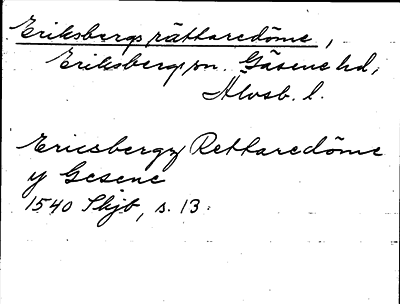 Eriksbergs rättaredöme,
Eriksberg sn. Gäsene hd,
Älvsb. l.
Ericsbergz Rettaredöme
y Gesene
1540 Skjb, s. 13.